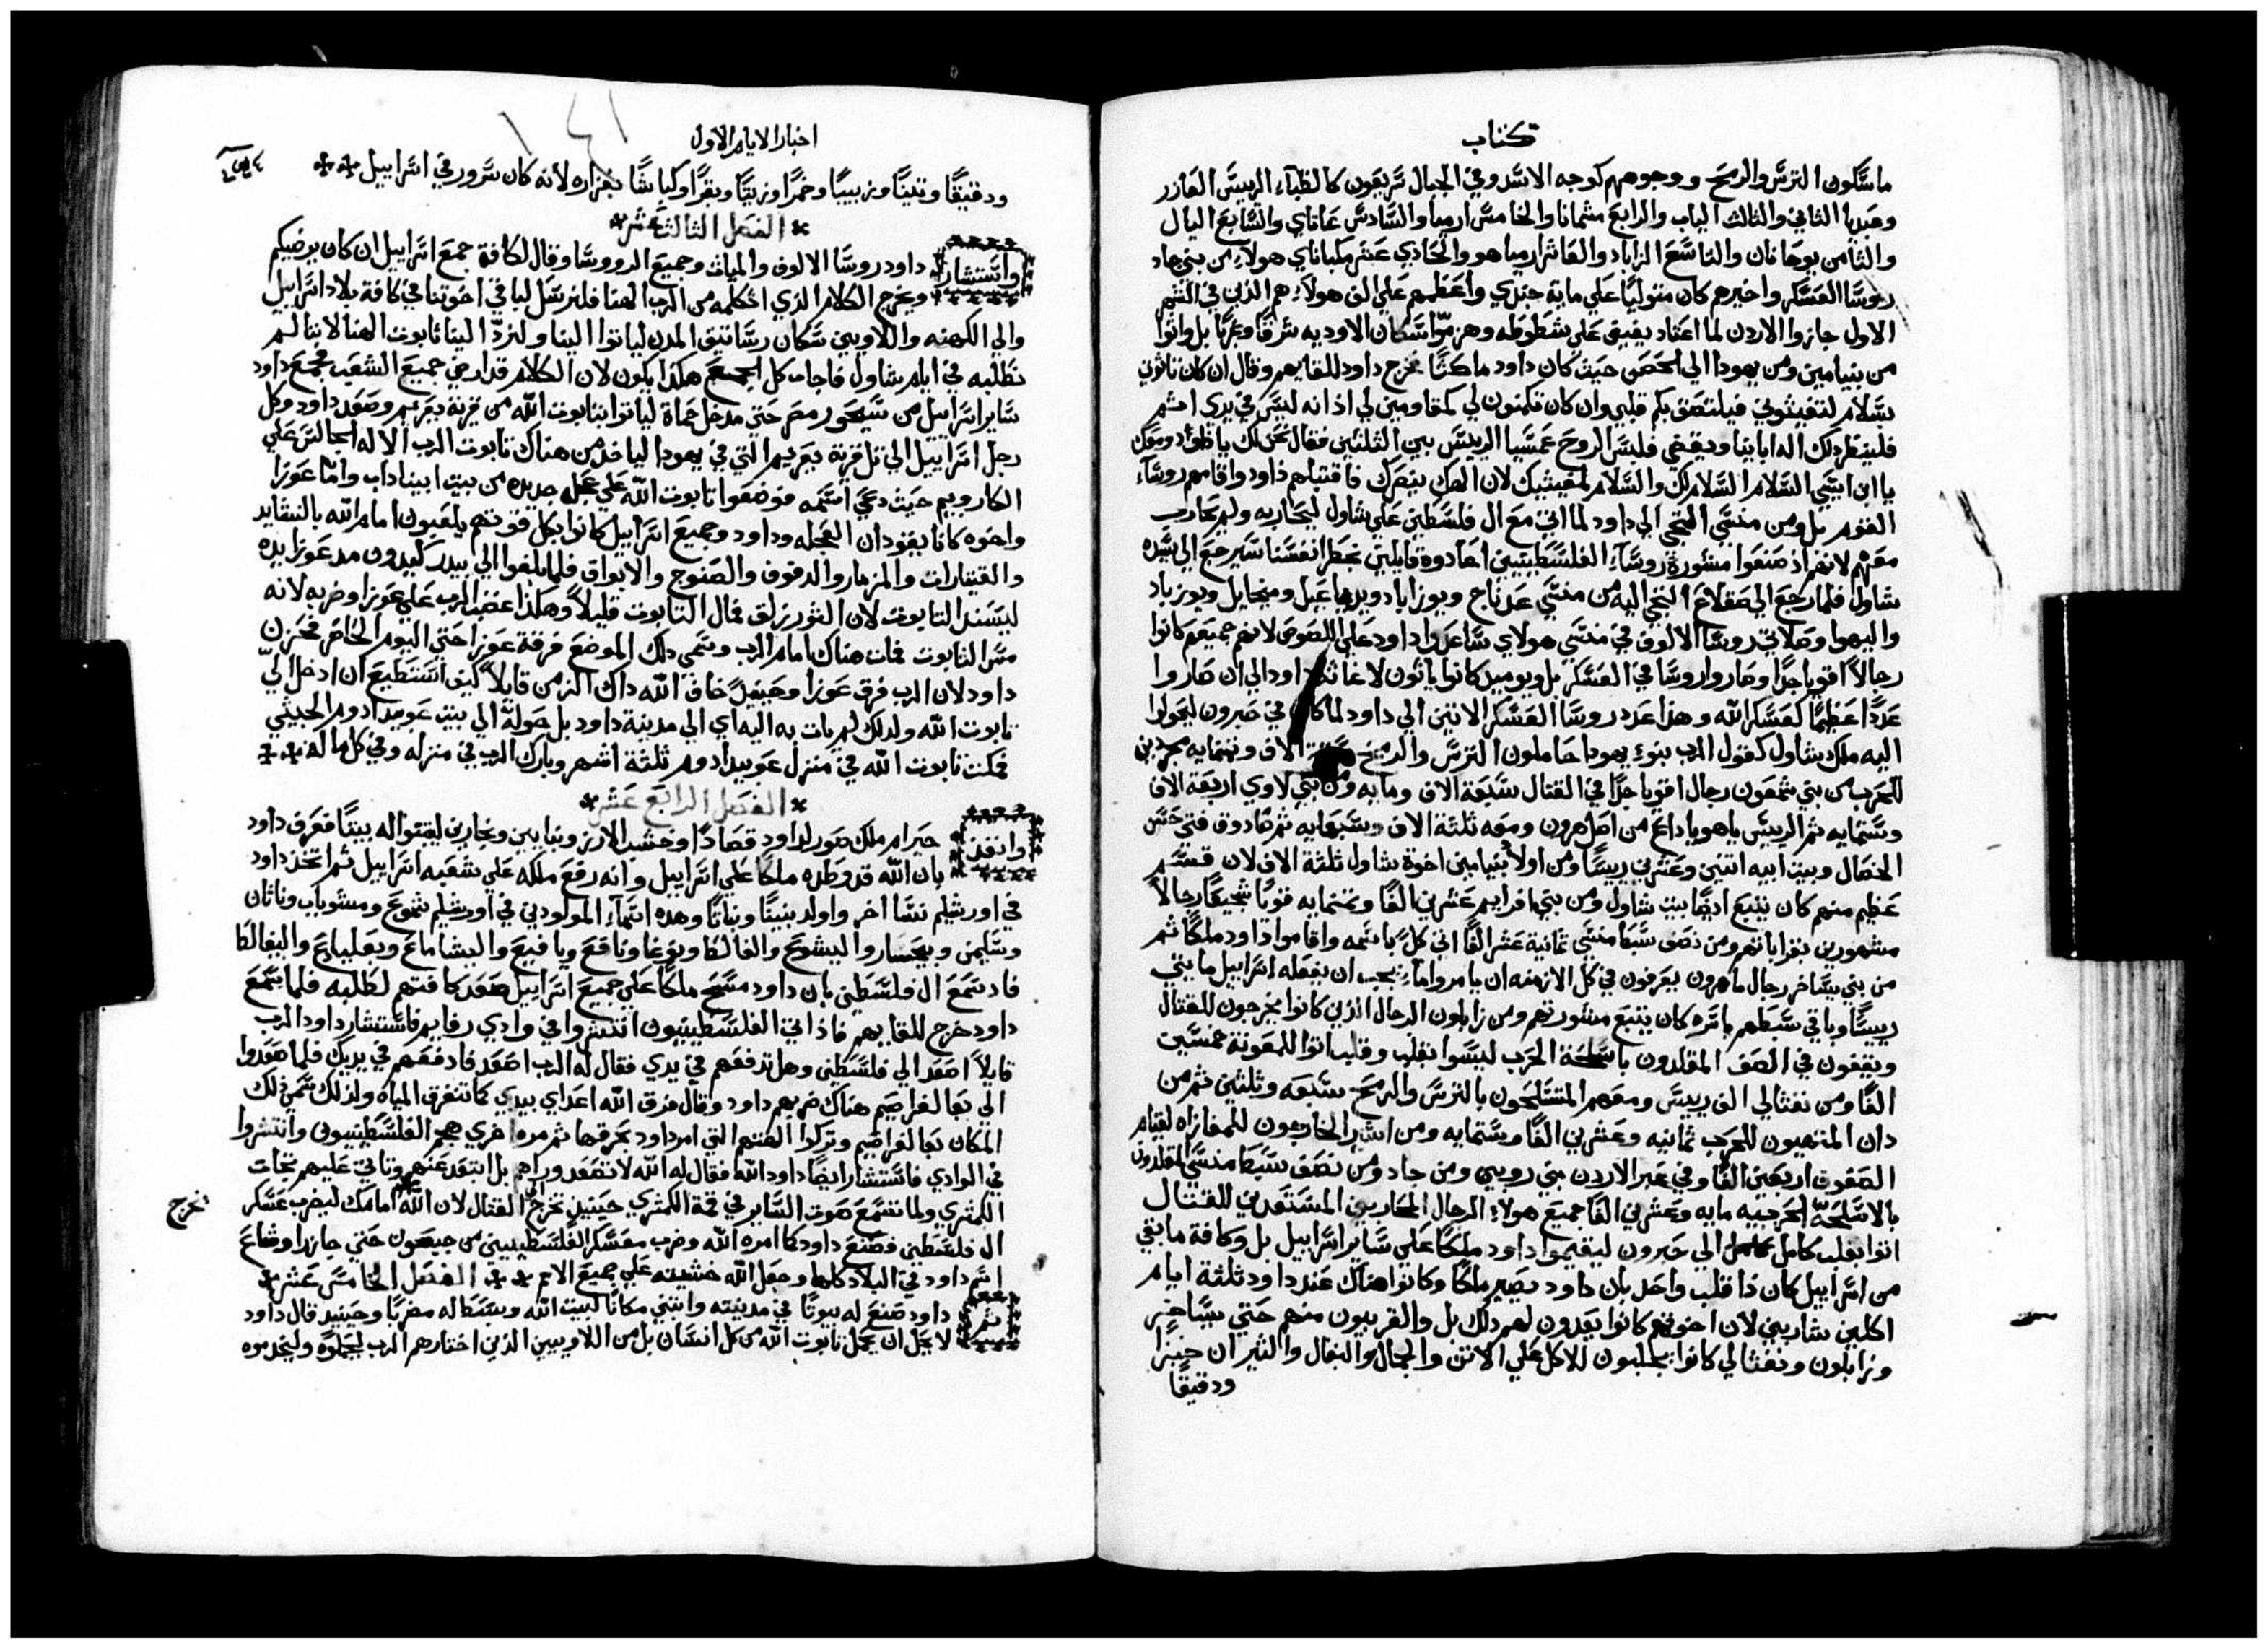 كتاب
ماسكون الترس والرمح ووجوههم كوجه الاسد وفي الجبال سريعون كالظبآء الرييس العازر
وعبديا الثاني والثالث الياب والرابع مشمانا والخامس ارميا والسادس عاتاي والسابع اليال
والثامن يوحانان والتاسع الزاباد والعاشر ارميا هو والحادي عشر مكباناي هولاء من بني جاد
روسا العسكر واخيرهم كان متوليًا علي ماية جندي واعظمهم علي الف هولاء هم الذين في الشهر
الاول جازوا الاردن لما اعتاد يفيض علي شطوطه وهزموا سكان الاوديه شرقًا وغربًا بل واتوا
من بنيامين ومن يهودا الي الحصن حيث كان داود ماكثًا فخرج داود للقايهم وقال ان كان تاتوني
بسلام لتغيثوني فيلتصق بكم قلبي وان كان تكمنون لي كمقاومين لي اذ انه ليس في يدي اثم
فلينظر ذلك اله ابايِنا ويقضي فلبس الروح عمسيا الرييس بين الثلثين فقال نحن لك يا داود ومعك
يا ابن ايسي السلام السلام لك والسلام لمغيثيك لان الهك ينصرك فاقتبلهم داود واقامهم روسآء
القوم بل ومن منسي التجي الي داود لما اتي مع ال فلسطين علي شاول ليحاربه ولم يحارب
معهم لانهم اذ صنعوا مشورة روسآء الفلسطينيين اعادوه قايلين بخطر انفسنا سيرجع الي سيده
شاول فلما رجع الي صقلاغ التجي اليه من منسي عدناج ويوزاباد ويديهاعيل وميخايل ويوزباد
واليهوا وصلاتي روسا الالوف في منسي هولاي ساعدوا داود علي اللصوص لانهم جميعهم كانوا
رجالًا اقويا جدًا وصاروا روسا في العسكر بل ويوميد كانوا ياتون لاغاثة داود الي ان صاروا
عددًا عظيمًا كعسكر الله وهذا عدد روسا العسكر الاتين الي داود لما كان في حبرون ليحولوا
اليه ملك شاول كقول الرب بنوء يهودا حاملون الترس والرمح ستة الاف وثمنمايه مجردين
للحرب من بني شمعون رجال اقويا جدًا في القتال سبعة الاف ومايه ومن بني لاوي اربعة الاف
وستمايه ثم الرييس ياهوياداع من اصل هرون ومعه ثلثة الاف وسبعمايه ثم صادوق فتي حسن
الخصال وبيت ابيه اثنين وعشرين رييسًا ومن اولاد بنيامين اخوة شاول ثلثة الاف لان قسم
عظيم منهم كان يتبع ايضًا بيت شاول ومن بني افرايم عشرين الفًا وثمنمايه قويًا شجيعًا رجالًا
مشهورين بقراباتهم ومن نصف سبط منسي ثمانية عشر الفًا اتي كلٌ باسمه واقاموا داود ملكًا ثم
من بني يساخر رجال ماهرون يعرفون في كل الازمنه ان يامروا ماء يجب ان يفعله اسراييل مايتي
رييسًا وباقي سبطهم باسره كان يتبع مشورتهم ومن زابلون الرجال الذين كانوا يخرجون للقتال
ويقفون في الصف المقلدون باسلحة الحرب ليسوا بقلب وقلب اتوا للمعونة خمسين
الفًا ومن نفثالي الف رييس ومعهم المتسلحون بالترس والرمح سبعه وثلثين ثم من
دان المتهيون للحرب ثمانيه وعشرين الفًا وستمايه ومن اشير الخارجون للمفازاه لقيام
الصفوف اربعين الفًا وفي عبر الاردن بني روبين ومن جاد ومن نصف سبط منسي المقلدون
بالاسلحة الحربيه مايه وعشرين الفًا جميع هولاء الرجال المحاربين المستعدين للقتال
اتوا بقلب كامل الي حبرون ليقيموا داود ملكًا علي ساير اسراييل بل وكافة ما بقي
من اسراييل كان ذا قلب واحد بان داود يصير ملكًا وكانوا هناك عند داود ثلثة ايام
اكلين شاربين لان اخوتهم كانوا يعدون لهم ذلك بل والقريبون منهم حتي يساخر
وزابلون ونفثالي كانوا يجلبون للاكل علي الاتن والجمال والبغال والثيران خبزًا
ودقيقًا
اخبار الايام الاول
ودقيقًا وتينًا وزبيبًا وخمرًا وزيتًا وبقرًا وكباشًا بغزاره لانه كان سرور في اسراييل
الفصل الثالث عشر
واستشار داود روسا الالوف والميات وجميع الرووسا وقال لكافة جمع اسراييل ان كان يرضيكم
ويخرج الكلام الذي اتكلمه من الرب الهنا فلنرسل لباقي اخوتنا في كافة بلاد اسراييل
والي الكهنه واللاويين سكان رساتيق المدن لياتوا الينا ولنردّ الينا تابوت الهنا لاننا لم
نطلبه في ايام شاول فاجاب كل الجمع هكذا يكون لان الكلام قد ارضي جميع الشعب فجمع داود
ساير اسراييل من سيحور مصر حتي مدخل حماة لياتوا بتابوت الله من قرية يعريم وصعد داود وكل
رجل اسراييل الي تل قرية يعريم التي في يهودا لياخذ من هناك تابوت الرب الاله الجالس علي
الكاروبيم حيث دعي اسمه فوضعوا تابوت الله علي عجله جديده من بيت ابيناداب واما عوزا
واخوه كانا يقودان العجله وداود وجميع اسراييل كانوا بكل قوتهم يلعبون امام الله بالنشايد
والقيتارات والمزمار والدفوف والصنوج والابواق فلما بلغوا الي بيدر كيدون مد عوزا يده
ليسند التابوت لان الثور زلق فمال التابوت قليلًا وهكذا غضب الرب علي عوزا وضربه لانه
مس التابوت فمات هناك امام الرب وسمي ذلك الموضع فرقة عوزا حتي اليوم الحاضر فحزن
داود لان الرب فرق عوزا وحينيذٍ خاف الله ذاك الزمن قايلًا كيف استطيع ان ادخل اليّ
تابوت الله ولذلك لم يات به اليه اي الي مدينة داود بل حوله الي بيت عوبيد ادوم الجيتي
فمكث تابوت الله في منزل عوبيد ادوم ثلثة اشهر وبارك الرب في منزله وفي كل ما له
الفصل الرابع عشر
وانفذ حيرام ملك صور لداود قصادًا وخشب الارز وبنايين ونجارين ليبنوا له بيتًا فعرف داود
بان الله قد وطده ملكًا علي اسراييل وانه رفع ملكه علي شعبه اسراييل ثم اتخذ داود
في اورشليم نسا اخر واولد بنينًا وبناتًا وهذه اسمآء المولودين في اورشليم شموع وشوباب وناثان
وسليمن ويبحسار واليشوع والفالط ونوغا ونافع ويافيع واليشاماع وبعلياداع واليفالط
فاذ سمع ال فلسطين بان داود مسح ملكًا علي جميع اسراييل صعد كافتهم لطلبه فلما سمع
داود خرج للقايهم فاذ اتي الفلسطينيون انتشروا في وادي رفايم فاستشار داود الرب
قايلًا اصعد الي فلسطين وهل تدفعهم في يدي فقال له الرب اصعد فادفعهم في يديك فلما صعدوا
الي بعالفراصيم هناك ضربهم داود وقال فرق الله اعداي بيدي كما تتفرق المياه ولذلك سمي ذلك
المكان بعالفراصيم وتركوا الهتهم التي امر داود بحرقها ثم مره اخري هجم الفلسطينيون وانتشروا
في الوادي فاستشار ايضًا داود الله فقال له الله لا تصعد وراهم بل ابتعد عنهم وتاتي عليهم تجات
الكمثري ولما تسمع صوت الساير في قمة الكمثري حينيذٍ تخرج للقتال لان الله امامك ليضرب عسكر
تخرج
ال فلسطين فصنع داود كما امره الله وضرب معسكر الفلسطينيين من جبعون حتي جازرا وشاع
اسم داود في البلاد كلها وجعل الله خشيته علي جميع الامم الفصل الخامس عشر
ثم داود صنع له بيوتًا في مدينته وابتني مكانًا لبيت الله وبسط له مضربًا وحينيد قال داود
لا يحل ان يحمل تابوت الله من كل انسان بل من اللاويين الذين اختارهم الرب ليحملوه وليخدموه